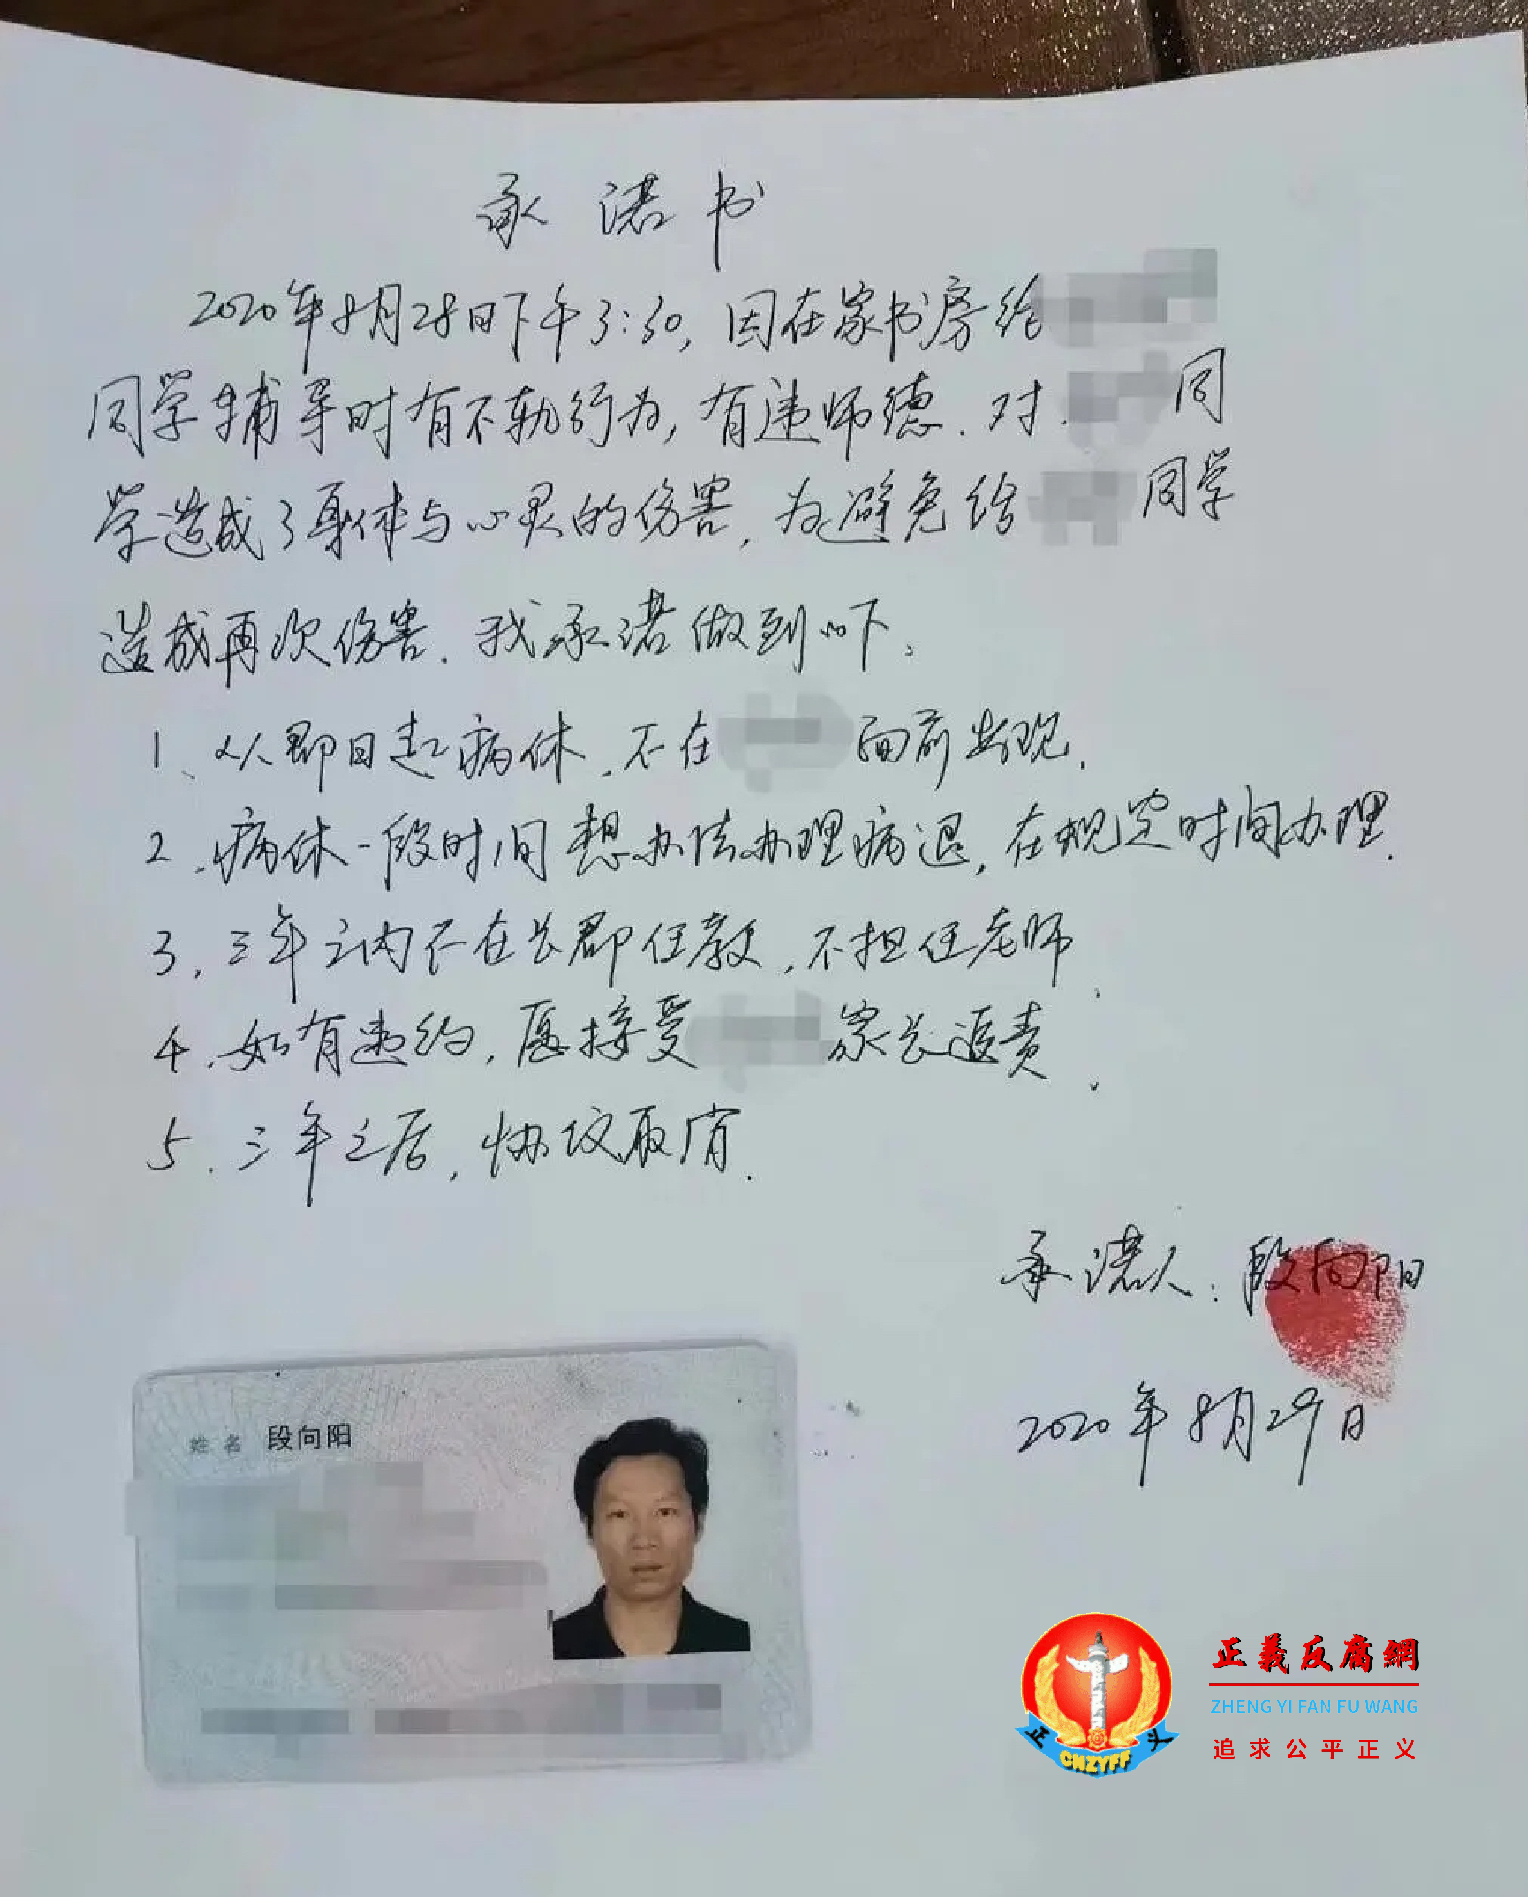 承诺书
2020年8月28日下午3:30，因在家书房给
同学辅导时有不轨行为，有违师德．对 同
学造成了身体与心灵的伤害，为避免给 同学
造成再次伤害．我承诺做到如下：
1、从即日起病休，不在 面前出现．
2、病休一段时间想办法办理病退，在规定时间办理．
3、三年之内不在长郡任教，不担任老师．
4、如有违约，愿接受 家长追责．
5、三年之后，协议取消．
承诺人：段向阳
2020年8月29日
姓名 段向阳
正義反腐網
ZHENG YI FAN FU WANG
追求公平正义
正 义
CNZYFF